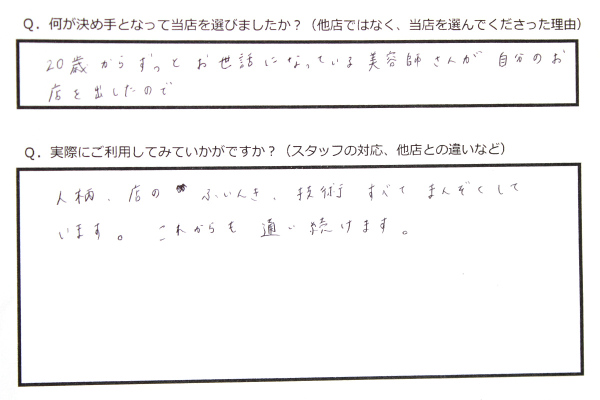 Q．何が決め手となって当店を選びましたか？（他店ではなく、当店を選んでくださった理由）
20歳からずっとお世話になっている美容師さんが自分のお
店を出したので
Q．実際にご利用してみていかがですか？（スタッフの対応、他店との違いなど）
人柄、店のふいんき、技術すべてまんぞくして
います。これからも通い続けます。